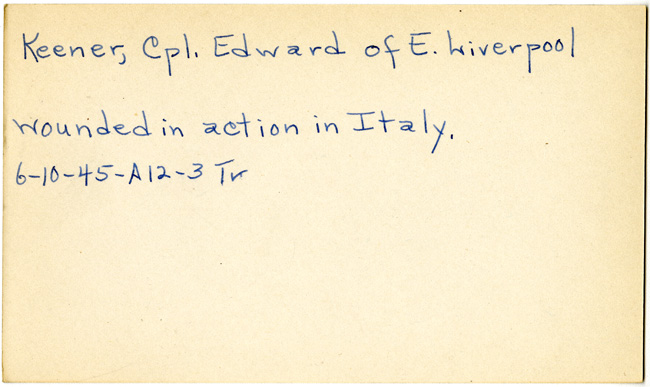 Keener, Cpl. Edward of E. Liverpool
wounded in action in Italy.
6-10-45-A12-3 Tr